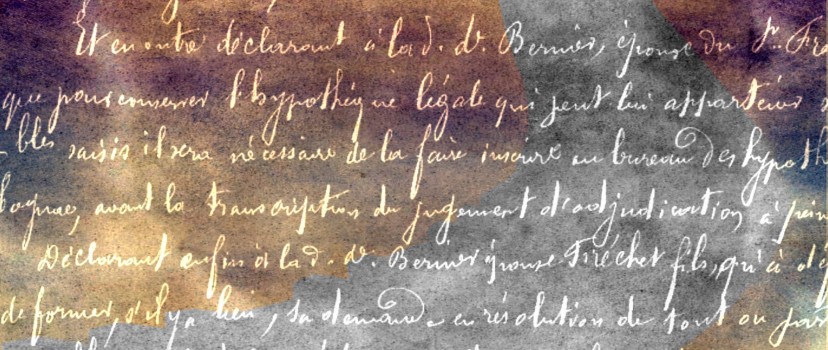 Et en outre déclarant à la d. dᵉ. Bernier, épouse du Sʳ. Fré
que pour conserver l'hypothèque légale qui peut lui appartenir s
- bles saisis il sera nécessaire de la faire inscrire au bureau des hypoth
Cognac, avant la transcription du jugement d'adjudication, à pein
Déclarant enfin à la d. dᵉ. Bernier épouse Fréchet fils, qu'à d
de former, s'il y a lieu, sa demande en résolution de tout ou par